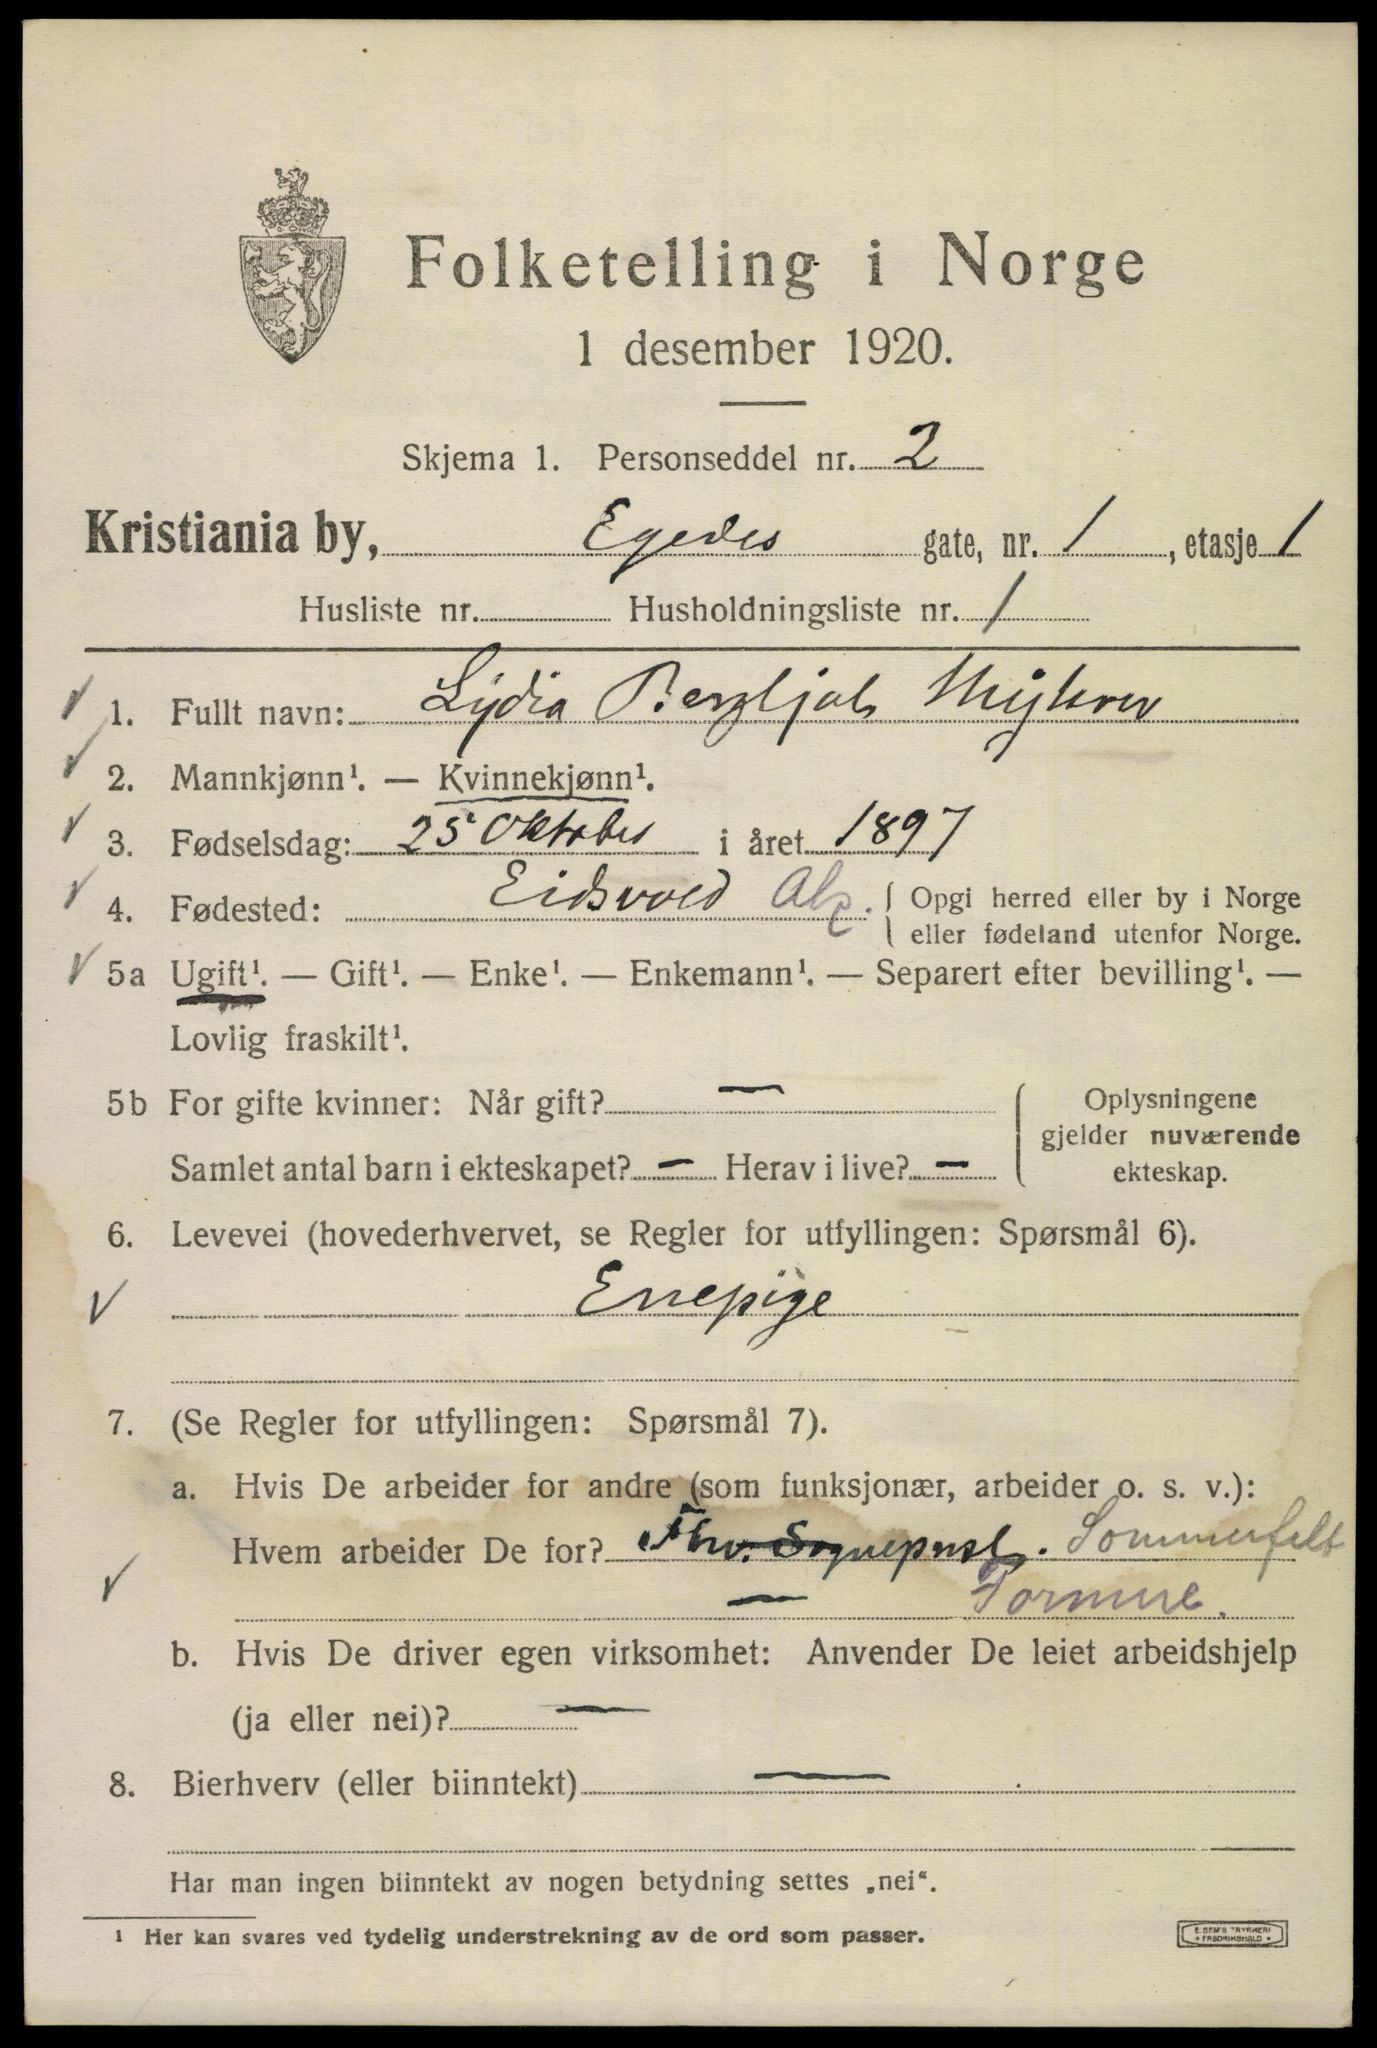 Folketelling i Norge
1 desember 1920.
Skjema 1. Personseddel nr. 2
Kristiania by, Egedes gate, nr. 1, etasje 1
Husliste nr. Husholdningsliste nr. 1
1. Fullt navn: Lydia Bergljot
2. Mannkjønn¹. — Kvinnekjønn¹.
3. Fødselsdag: 25 Oktober i året 1897
4. Fødested: Eidsvold Ak. { Opgi herred eller by i Norge
eller fødeland utenfor Norge.
5a Ugift¹. — Gift¹. — Enke¹. — Enkemann¹. — Separert efter bevilling¹. —
Lovlig fraskilt¹.
5b For gifte kvinner: Når gift? —
Samlet antal barn i ekteskapet? — Herav i live? —
Oplysningene
gjelder nuværende
ekteskap.
6. Levevei (hovederhvervet, se Regler for utfyllingen: Spørsmål 6).
Enepige
7. (Se Regler for utfyllingen: Spørsmål 7).
a. Hvis De arbeider for andre (som funksjonær, arbeider o. s. v.):
Hvem arbeider De for? Sogneprest. Sommerfelt
—
b. Hvis De driver egen virksomhet: Anvender De leiet arbeidshjelp
(ja eller nei)? —
8. Bierhverv (eller biinntekt) —
Har man ingen biinntekt av nogen betydning settes „nei“.
¹ Her kan svares ved tydelig understrekning av de ord som passer.
E. SEM'S TRYKKERI
FREDRIKSHALD